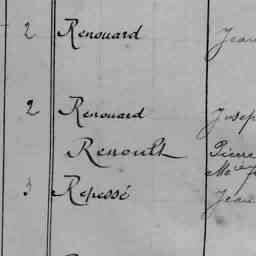 2 Renouard Jean
2 Renouard Josep
Renoult Pierre
3 Repessé Jean